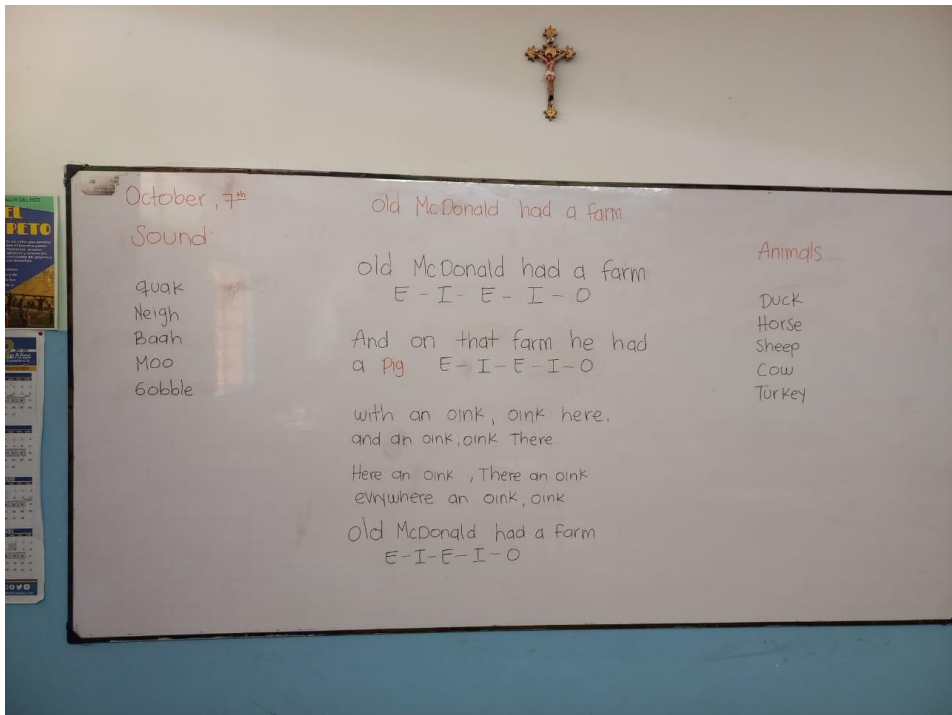 October, 7th
Sound
quak
Neigh
Baah
Moo
Gobble
old McDonald had a farm
old McDonald had a farm
E - I - E - I - O
And on that farm he had
a Pig E - I - E - I - O
with an oink, oink here.
and an oink, oink There.
Here an oink, There an oink
evrywhere an oink, oink
Old McDonald had a farm
E - I - E - I - O
Animals
Duck
Horse
Sheep
Cow
Turkey
VALOR DEL MES
EL
PETO